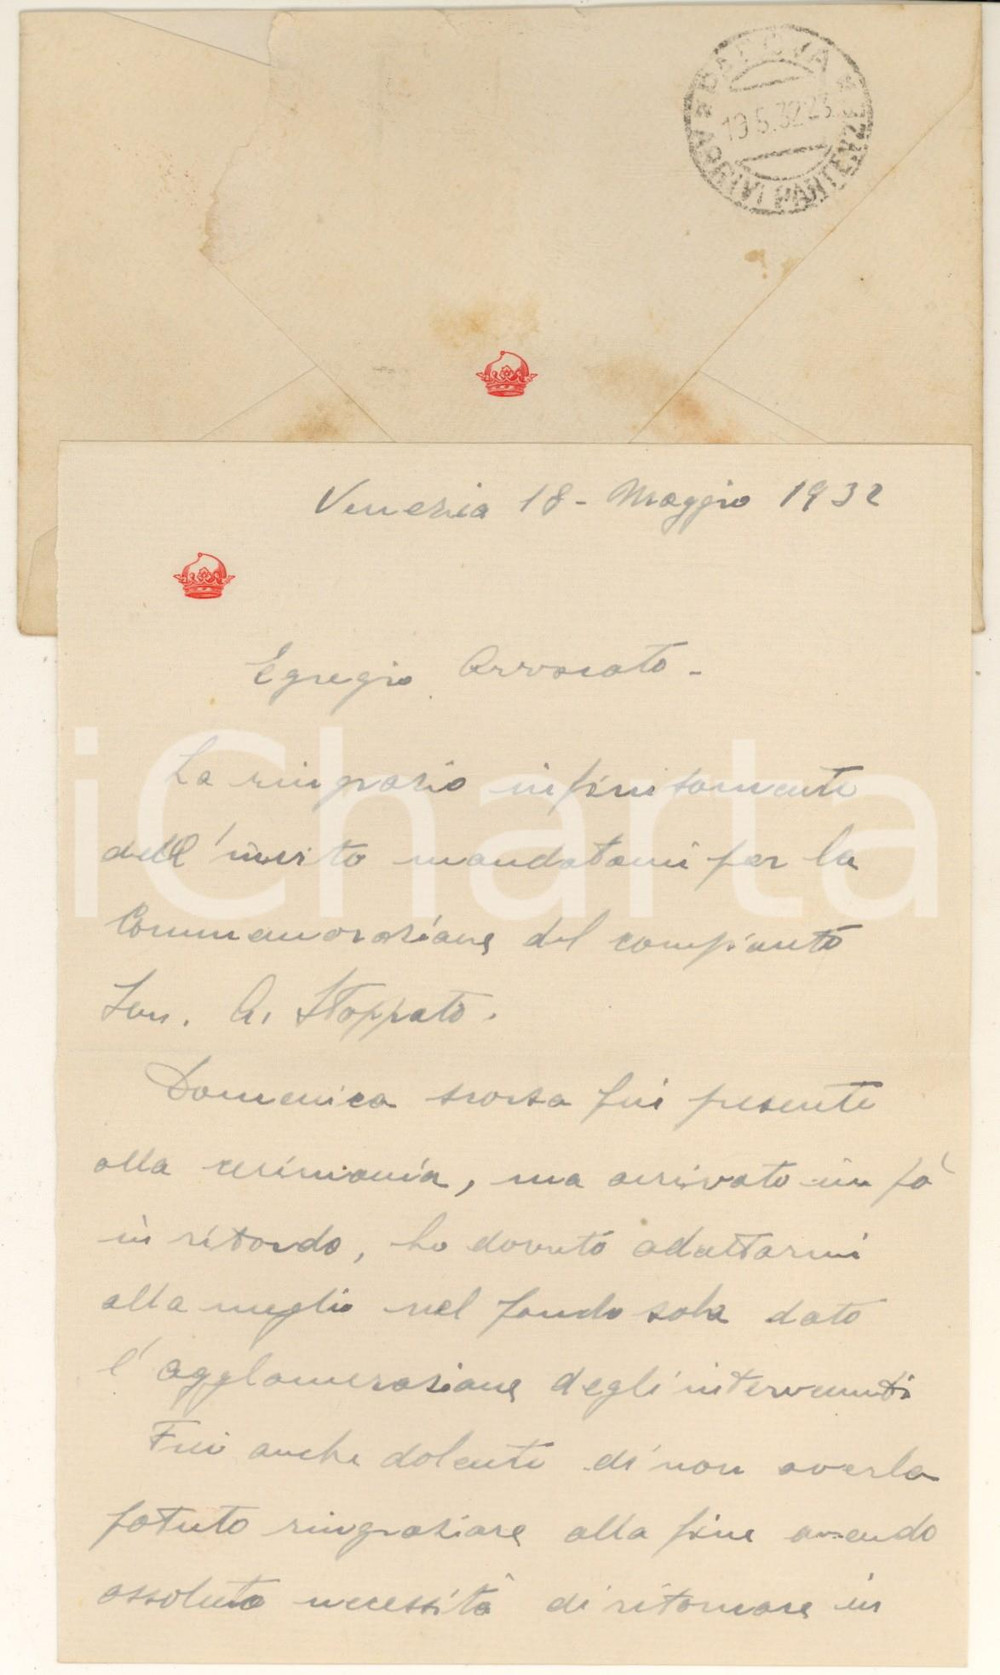 PADOVA
19.5.32.23
ARRIVI PARTENZE
Venezia 18 - Maggio 1932
Egregio Avvocato -
La ringrazio infinitamente
dell'invito mandatomi per la
Commemorazione del compianto
Sen. A. Stoppato.
Domenica scorsa fui presente
alla cerimonia, ma arrivato un pò
in ritardo, ho dovuto adattarmi
alla meglio nel fondo sala dato
l'agglomerazione degli intervenuti
Fui anche dolente di non averla
potuto ringraziare alla fine avendo
assoluta necessità di ritornare in
iCharta